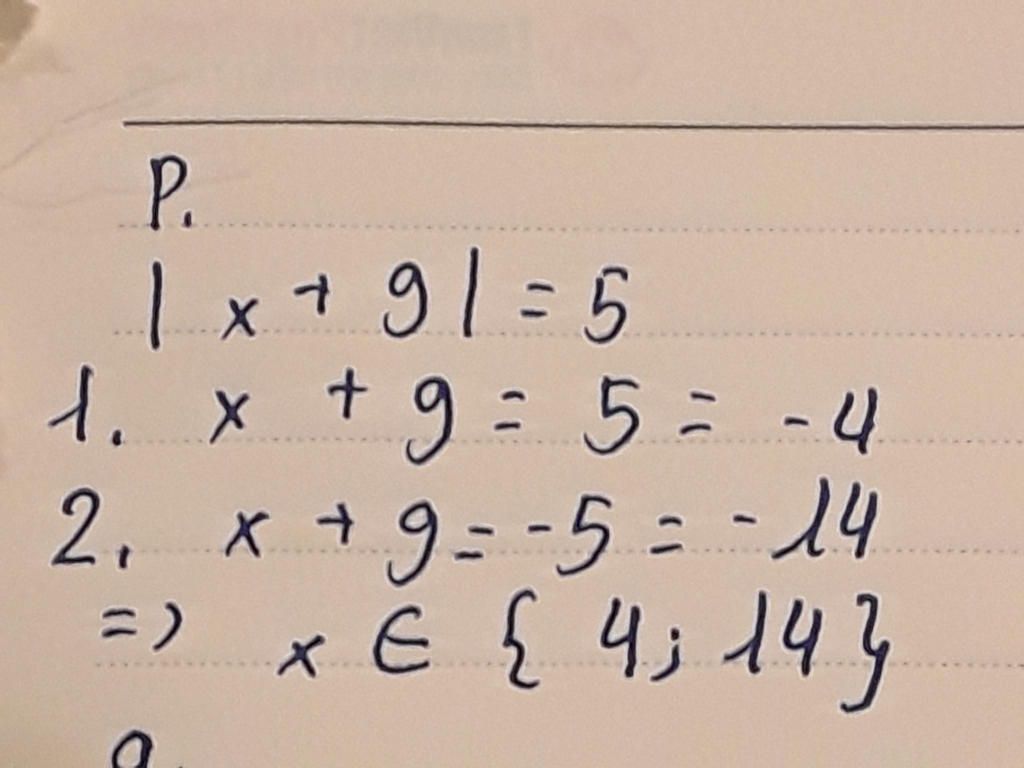 P.
| x + 9 | = 5
1. x + 9 = 5 = - 4
2. x + 9 = - 5 = - 14
=> x ∈ { 4 ; 14 }